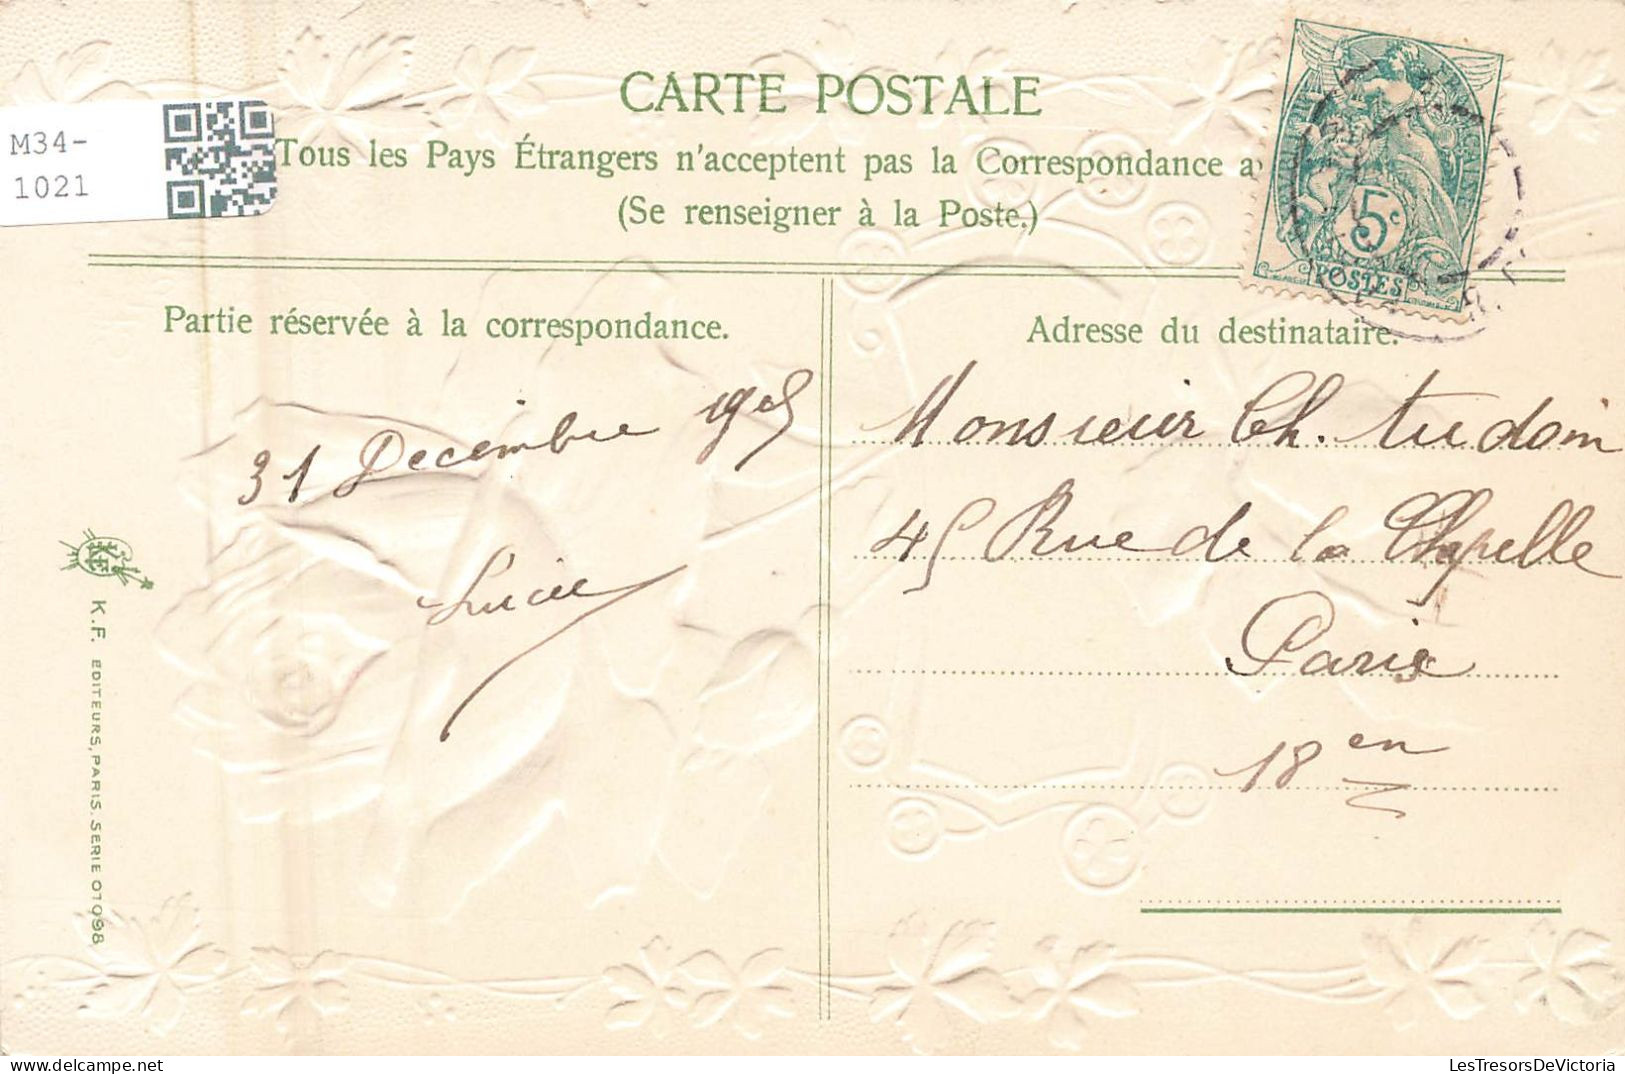 CARTE POSTALE
Tous les Pays Étrangers n'acceptent pas la Correspondance a
(Se renseigner à la Poste.)
M34-
1021
5c
POSTES
Partie réservée à la correspondance.
31 Decembre 1905
Lucie
Adresse du destinataire.
Monsieur Ch. Audoin
45 Rue de la Chapelle
Paris
18en
K.F. EDITEURS, PARIS. SERIE 01098
LesTresorsDeVictoria